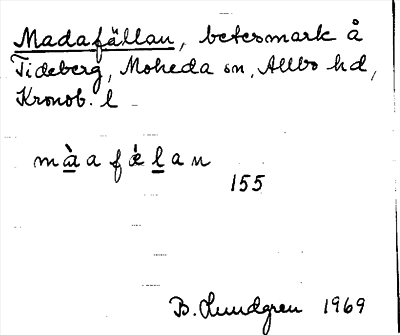 Madafällan, betesmark å
Tideberg, Moheda sn, Allbo hd,
Kronob. l
m à a f ǽ l a n
155
B. Lundgren 1969